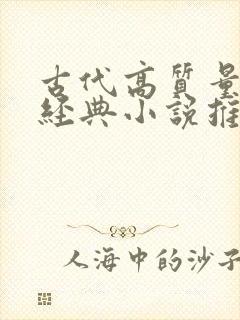 古代高質量
經典小說推
人海中的沙子